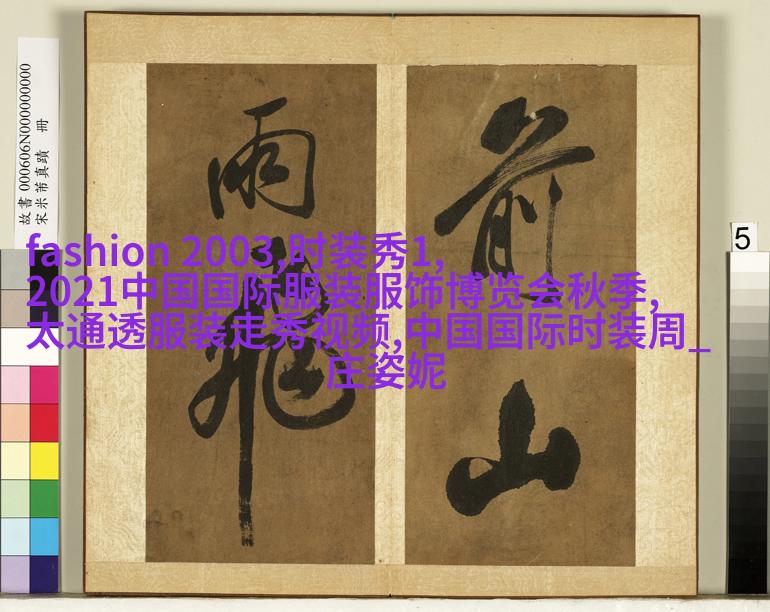 故書 000606N000000000
宋米芾真蹟 冊
前山
雨飛
fashion 2003,时装秀1,
2021中国国际服装服饰博览会秋季,
太通透服装走秀视频,中国国际时装周_
庄姿妮
5